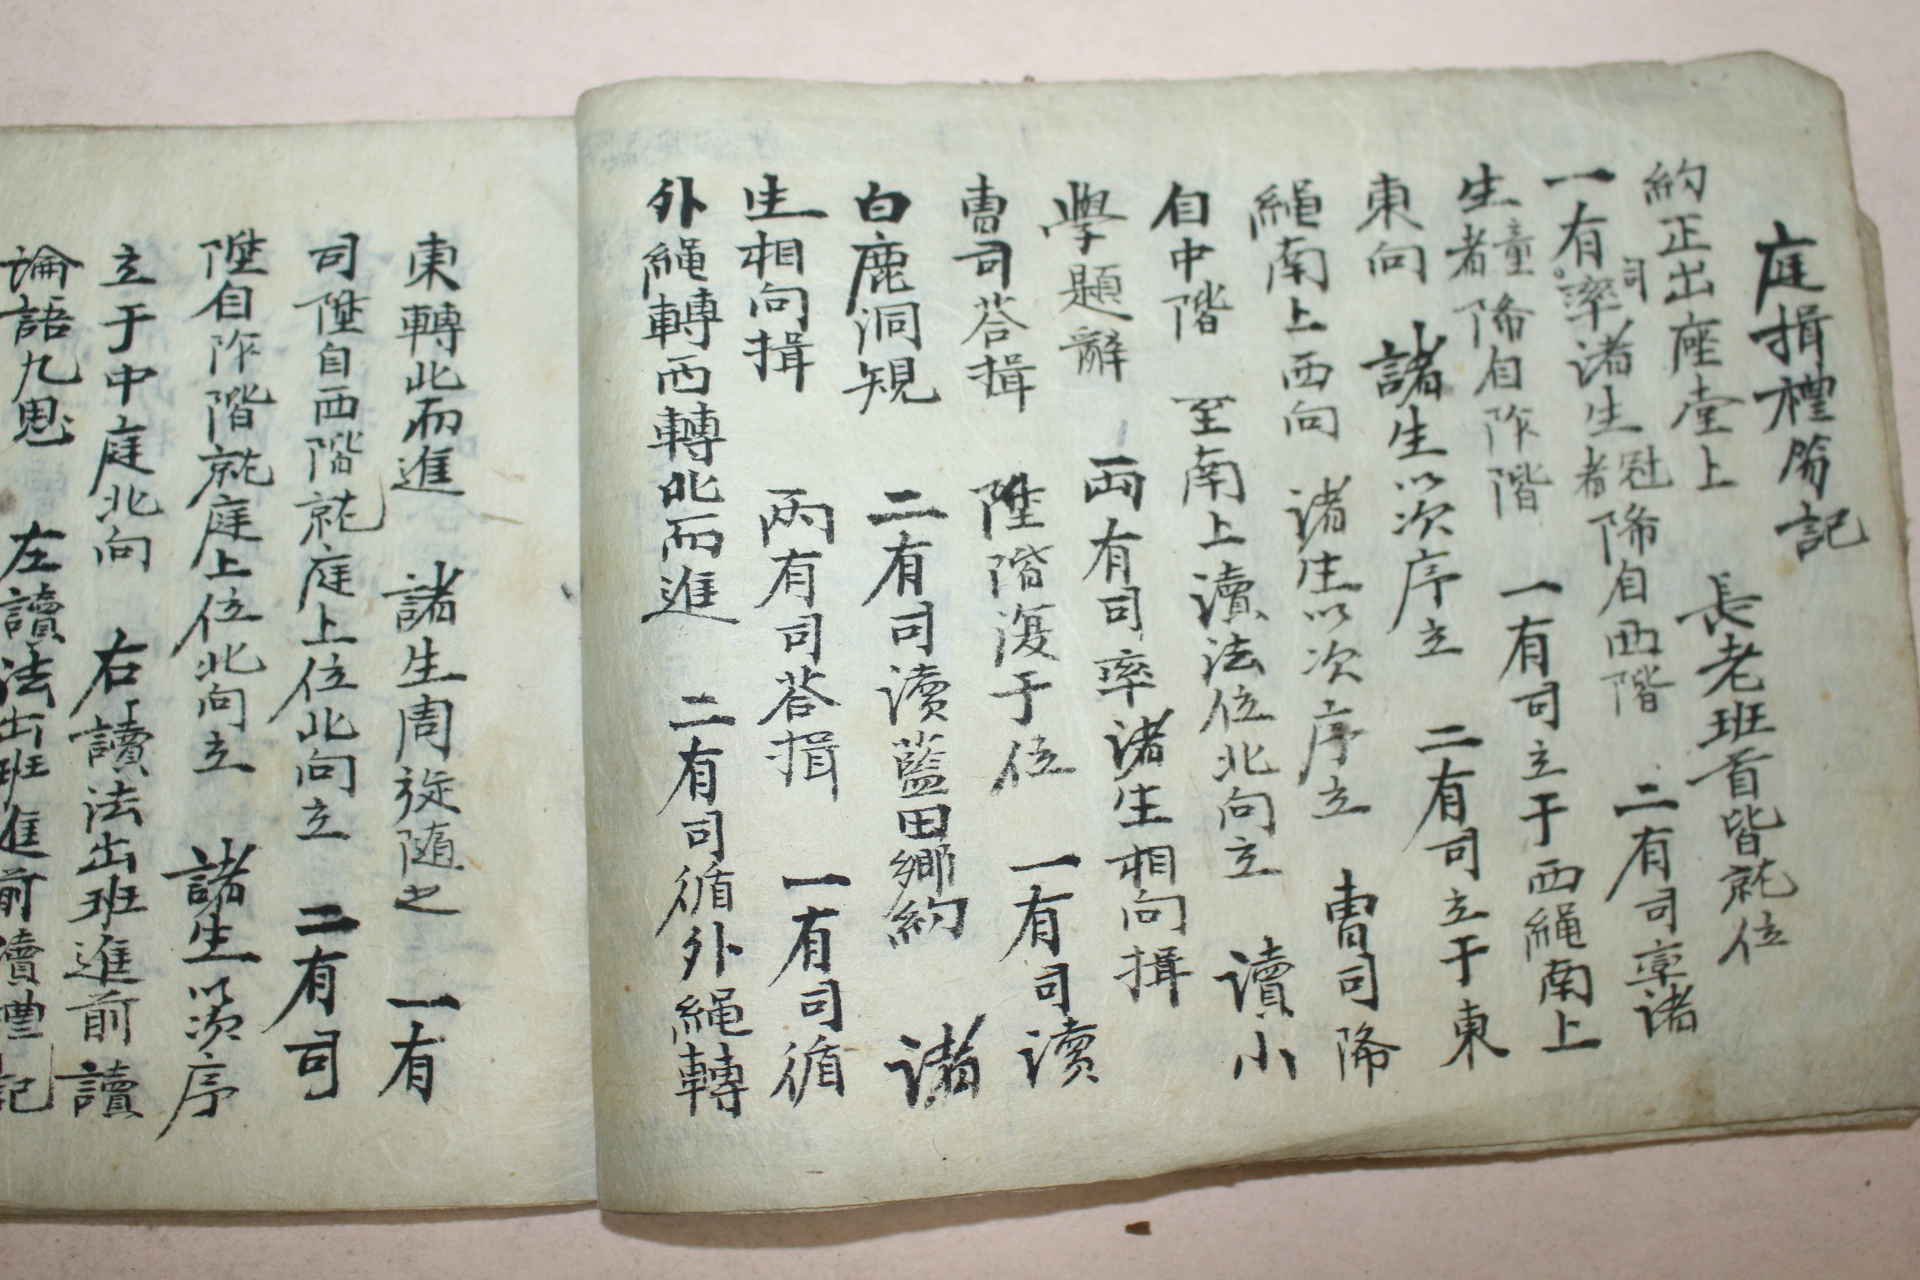 庭揖禮笏記
長老班首皆就位
約正出座堂上 二有司率諸
一有司率諸生冠者降自西階
生童者降自阼階 一有司立于西繩南上
東向 諸生以次序立 二有司立于東
繩南上西向 諸生以次序立 曺司降
自中階 至南上讀法位北向立 讀小
學題辭 兩有司率諸生相向揖
曺司答揖 陞階復于位 一有司讀
白鹿洞規 二有司讀藍田鄕約 諸
生相向揖 兩有司答揖 一有司循
外繩轉西轉北而進 二有司循外繩轉
東轉北而進 諸生周旋隨之 一有
司陞自西階就庭上位北向立 二有司
陞自阼階就庭上位北向立 諸生以次序
立于中庭北向 右讀法出班進前讀
論語九思 左讀法出班進前讀禮記